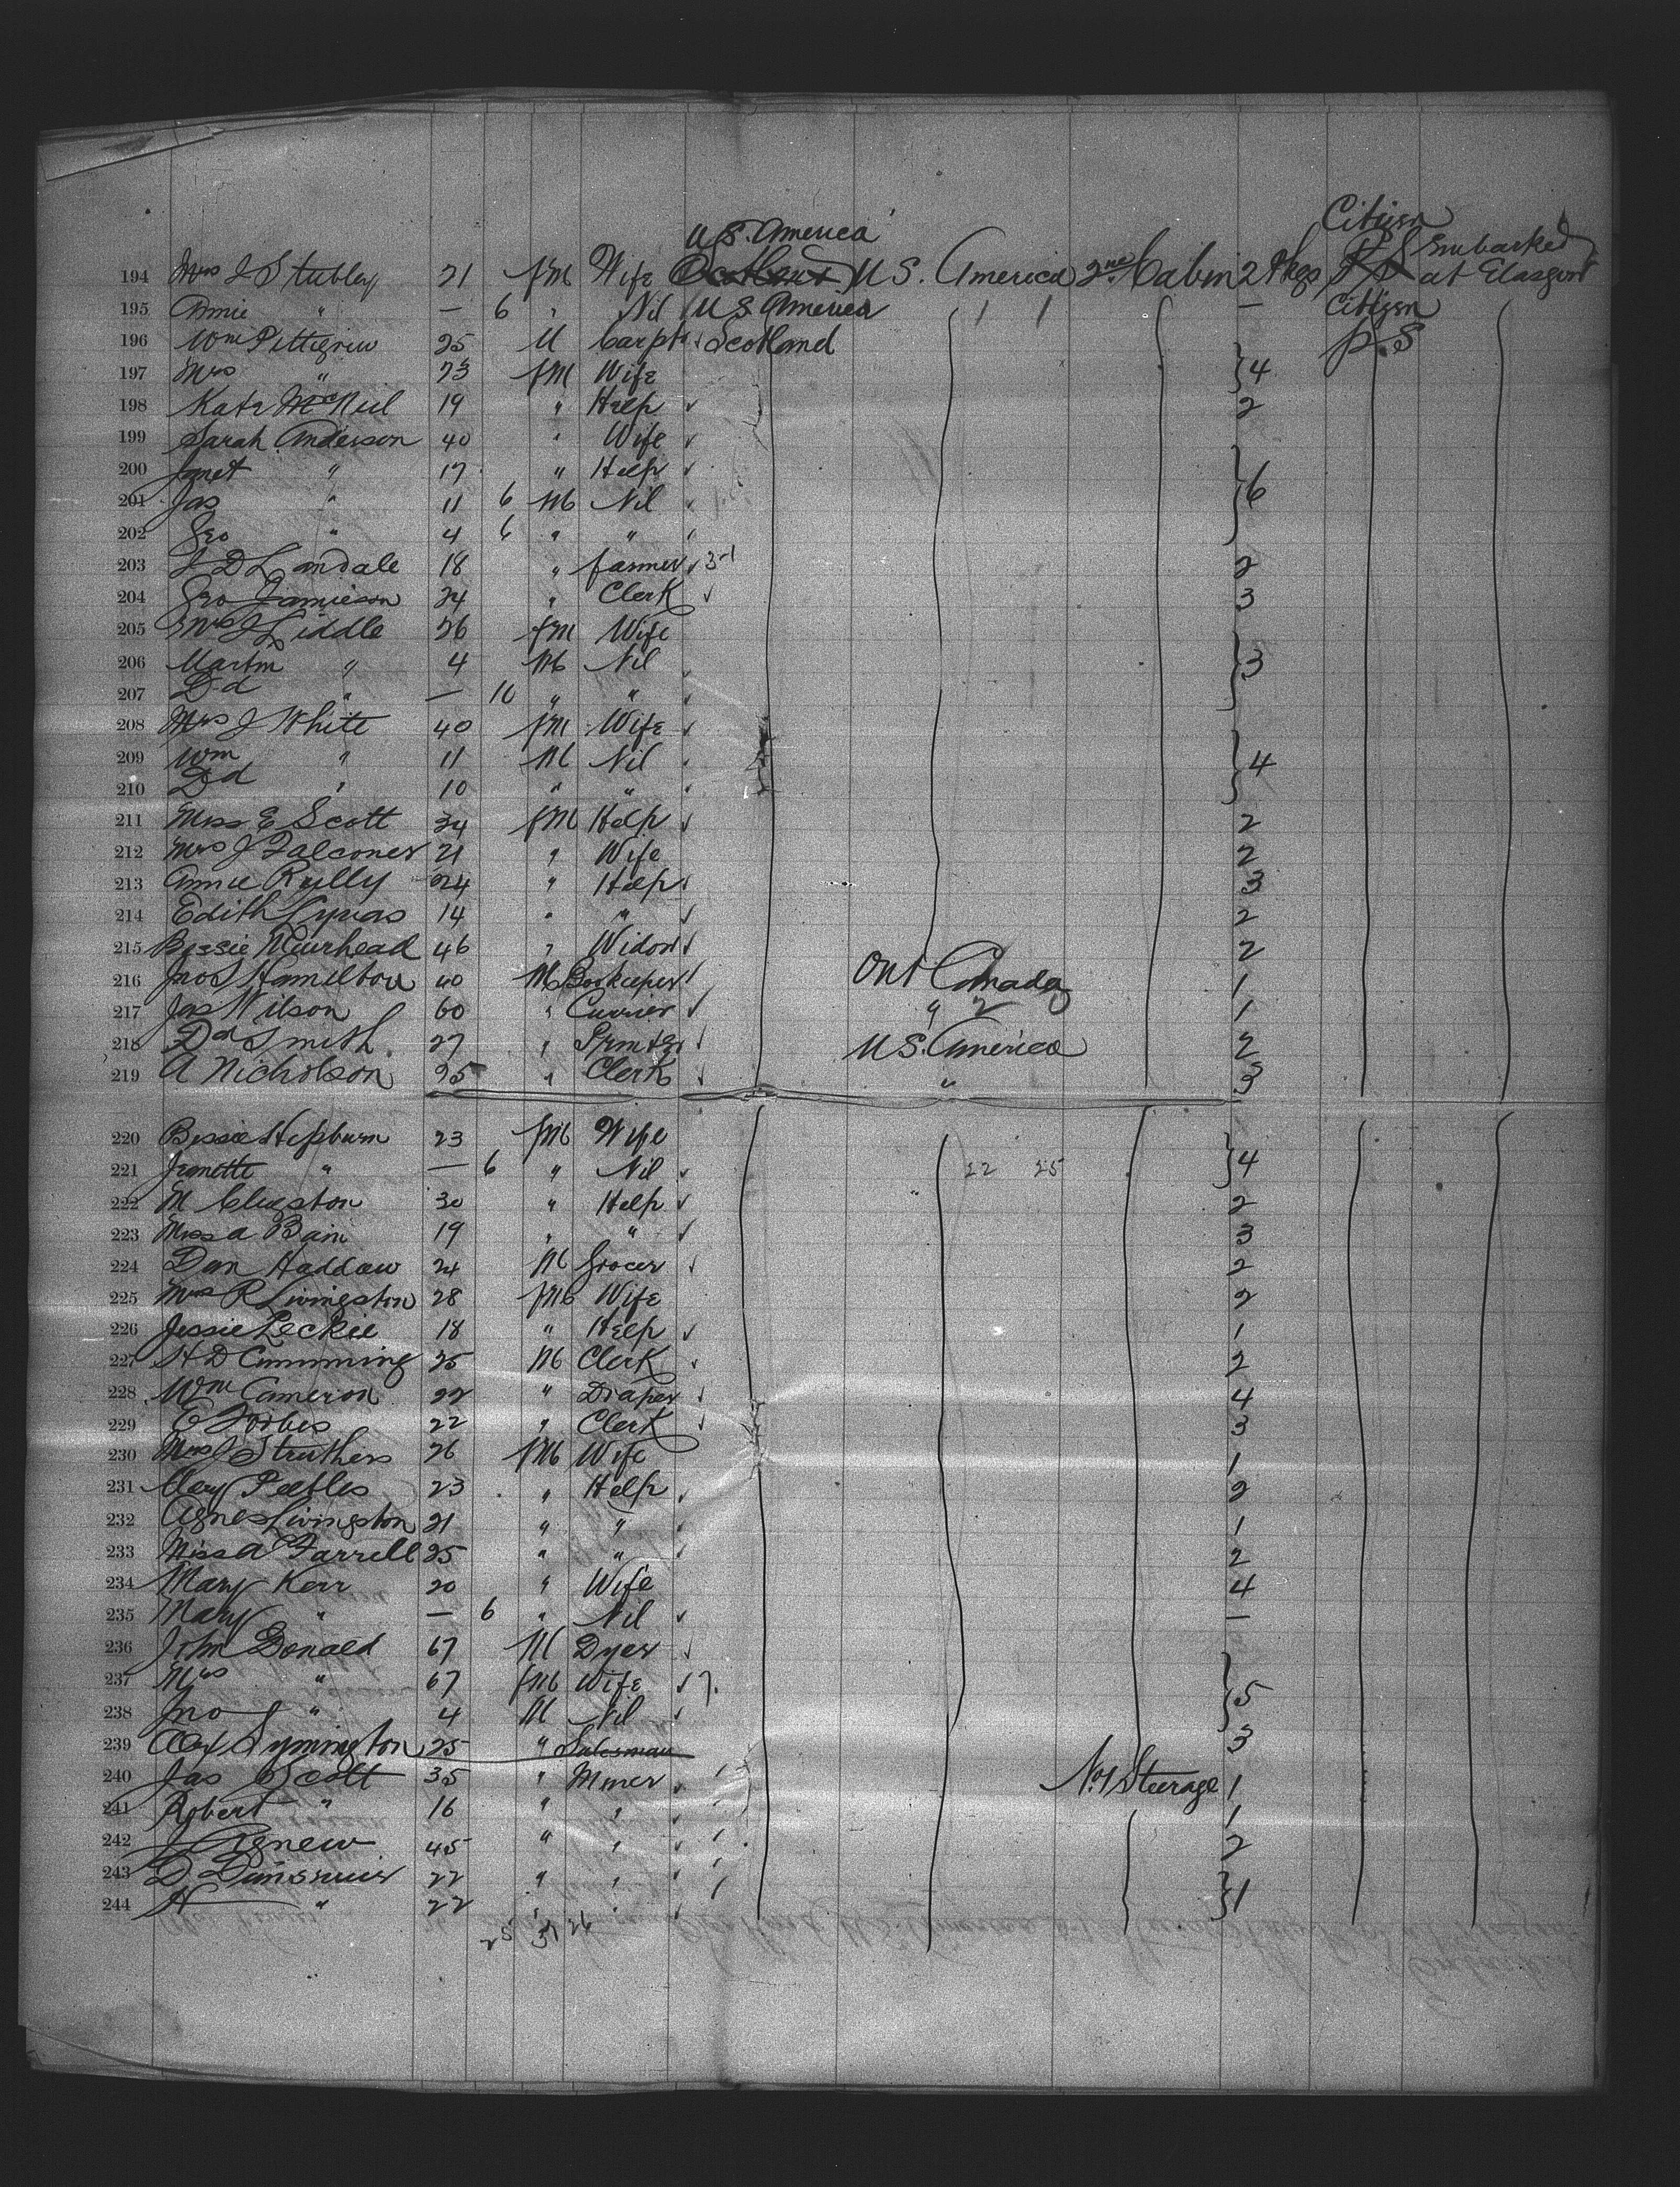 U.S. America Citizen
194 Mrs J Stubley 21 fM Wife Scotland U.S. America 2nd Cabin 2 Pkgs P.S Embarked at Glasgow
195 Annie " — 6 " Nil U S America — Citizen
196 Wm Pettigrew 25 M Carptr Scotland P.S
197 Mrs " 23 fM Wife 4
198 Kate McNeil 19 " Help 2
199 Sarah Anderson 40 " Wife
200 Janet " 17 " Help
201 Jas " 11 6 M Nil 6
202 Geo " 4 6 " "
203 J D Landale 18 " farmer 2
204 Geo Jamieson 24 " Clerk 3
205 Mrs J Liddle 26 fM Wife
206 Martin " 4 M Nil 3
207 Dd " — 10 " "
208 Mrs J White 40 fM Wife
209 Wm " 11 M Nil 4
210 Dd " 10 " "
211 Miss E Scott 24 fM Help 2
212 Mrs J Falconer 21 " Wife 2
213 Annie Rylly 24 " Help 3
214 Edith 14 " " 2
215 Bessie Muirhead 46 " Widow 2
216 Jno S Hamilton 40 M Bookeeper Ont Canada 1
217 Jas Wilson 60 " Currier " " 1
218 Dd Smith 27 " Printer U S. America 2
219 A Nicholson 25 " Clerk " 3
220 Bessie Hepburn 23 fM Wife
221 Jeanette " — 6 " Nil 22 25 4
222 M Clugston 30 " Help 2
223 Miss A Bain 19 " " 3
224 Dan Haddow 24 M Grocer 2
225 Mrs R Livingston 28 fM Wife 2
226 Jessie Leckie 18 " Help 1
227 H D Cummming 25 M Clerk 2
228 Wm Cameron 22 " Draper 4
229 E Forbes 22 " Clerk 3
230 Mrs J Struthers 26 fM Wife 1
231 Mary Peebles 23 " Help 2
232 Agnes Livingston 21 " " 1
233 Miss A Farrell 25 " " 2
234 Mary Kerr 20 " Wife 4
235 Mary " — 6 " Nil —
236 John Donald 67 M Dyer
237 Mrs " 67 fM Wife 5
238 Jno " 4 M Nil
239 Alex Symington 25 " Salesman 3
240 Jas Scott 35 " Miner No 1 Steerage 1
241 Robert " 16 " " 1
242 J Agnew 45 " " 2
243 D Dunsmuir 22 " "
244 H " 22 " " 1
25 31 26